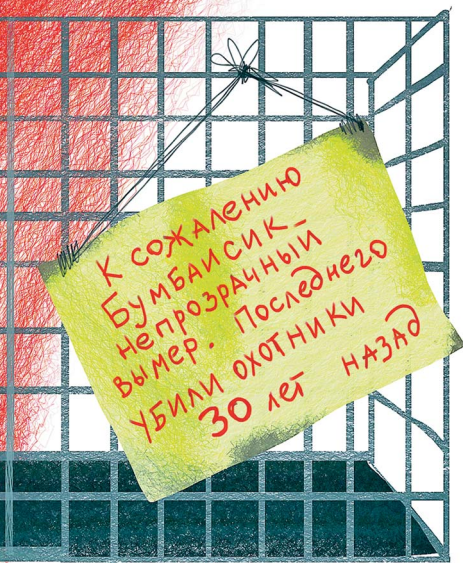 К сожалению
Бумбаисик-
непрозрачный
вымер. Последнего
убили охотники
30 лет назад